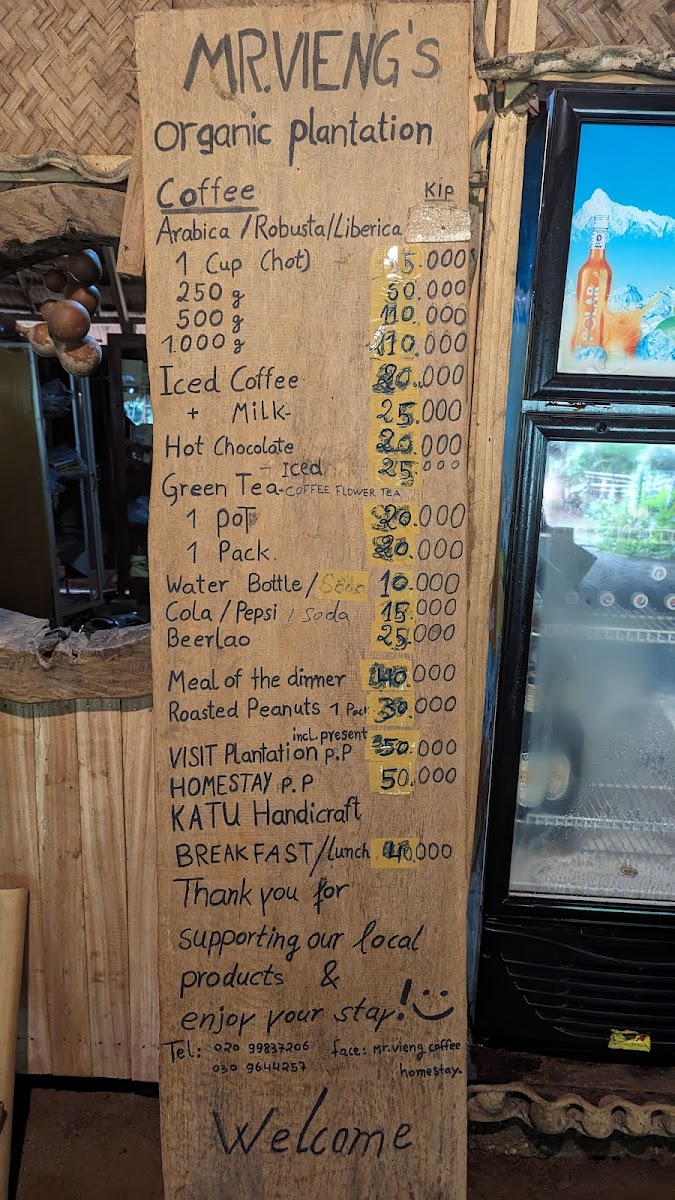 MR.VIENG's
organic plantation
Coffee Kip
Arabica /Robusta/Liberica
1 Cup (hot) 15.000
250 g 60.000
500 g 110.000
1.000 g .000
Iced Coffee 20.000
+ Milk 25.000
Hot Chocolate 20.000
- Iced 25.000
Green Tea + COFFEE FLOWER TEA
1 poT 20.000
1 Pack. 20.000
Water Bottle / Soda 10.000
Cola / Pepsi / Soda 15.000
Beerlao 25.000
Meal of the dinner 40.000
Roasted Peanuts 1 Pack 30.000
incl. present
VISIT Plantation p.p 50.000
HOMESTAY p.p 50.000
KATU Handicraft
BREAKFAST/Lunch 40.000
Thank you for
supporting our local
products &
enjoy your stay!
Tel: 020 99837206 face: Mr.vieng coffee
030 9644257 homestay.
Welcome
POLAR